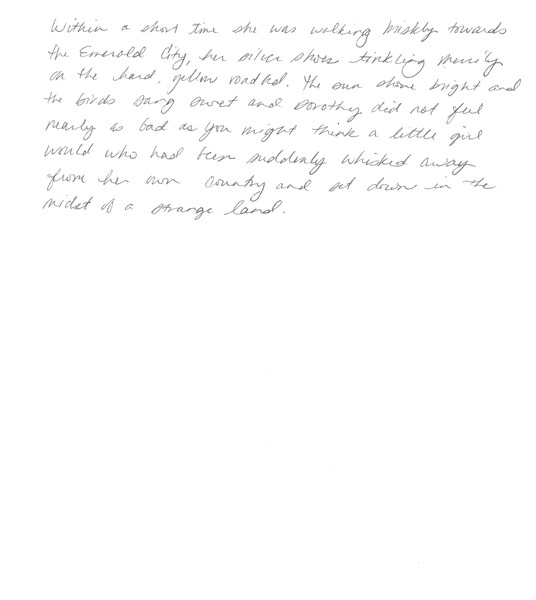 Within a short time she was walking briskly towards
the Emerald City, her silver shoes tinkling merrily
on the hard, yellow roadbed. The sun shone bright and
the birds sang sweet and Dorothy did not feel
nearly as bad as you might think a little girl
would who had been suddenly whisked away
from her own country and set down in the
midst of a strange land.